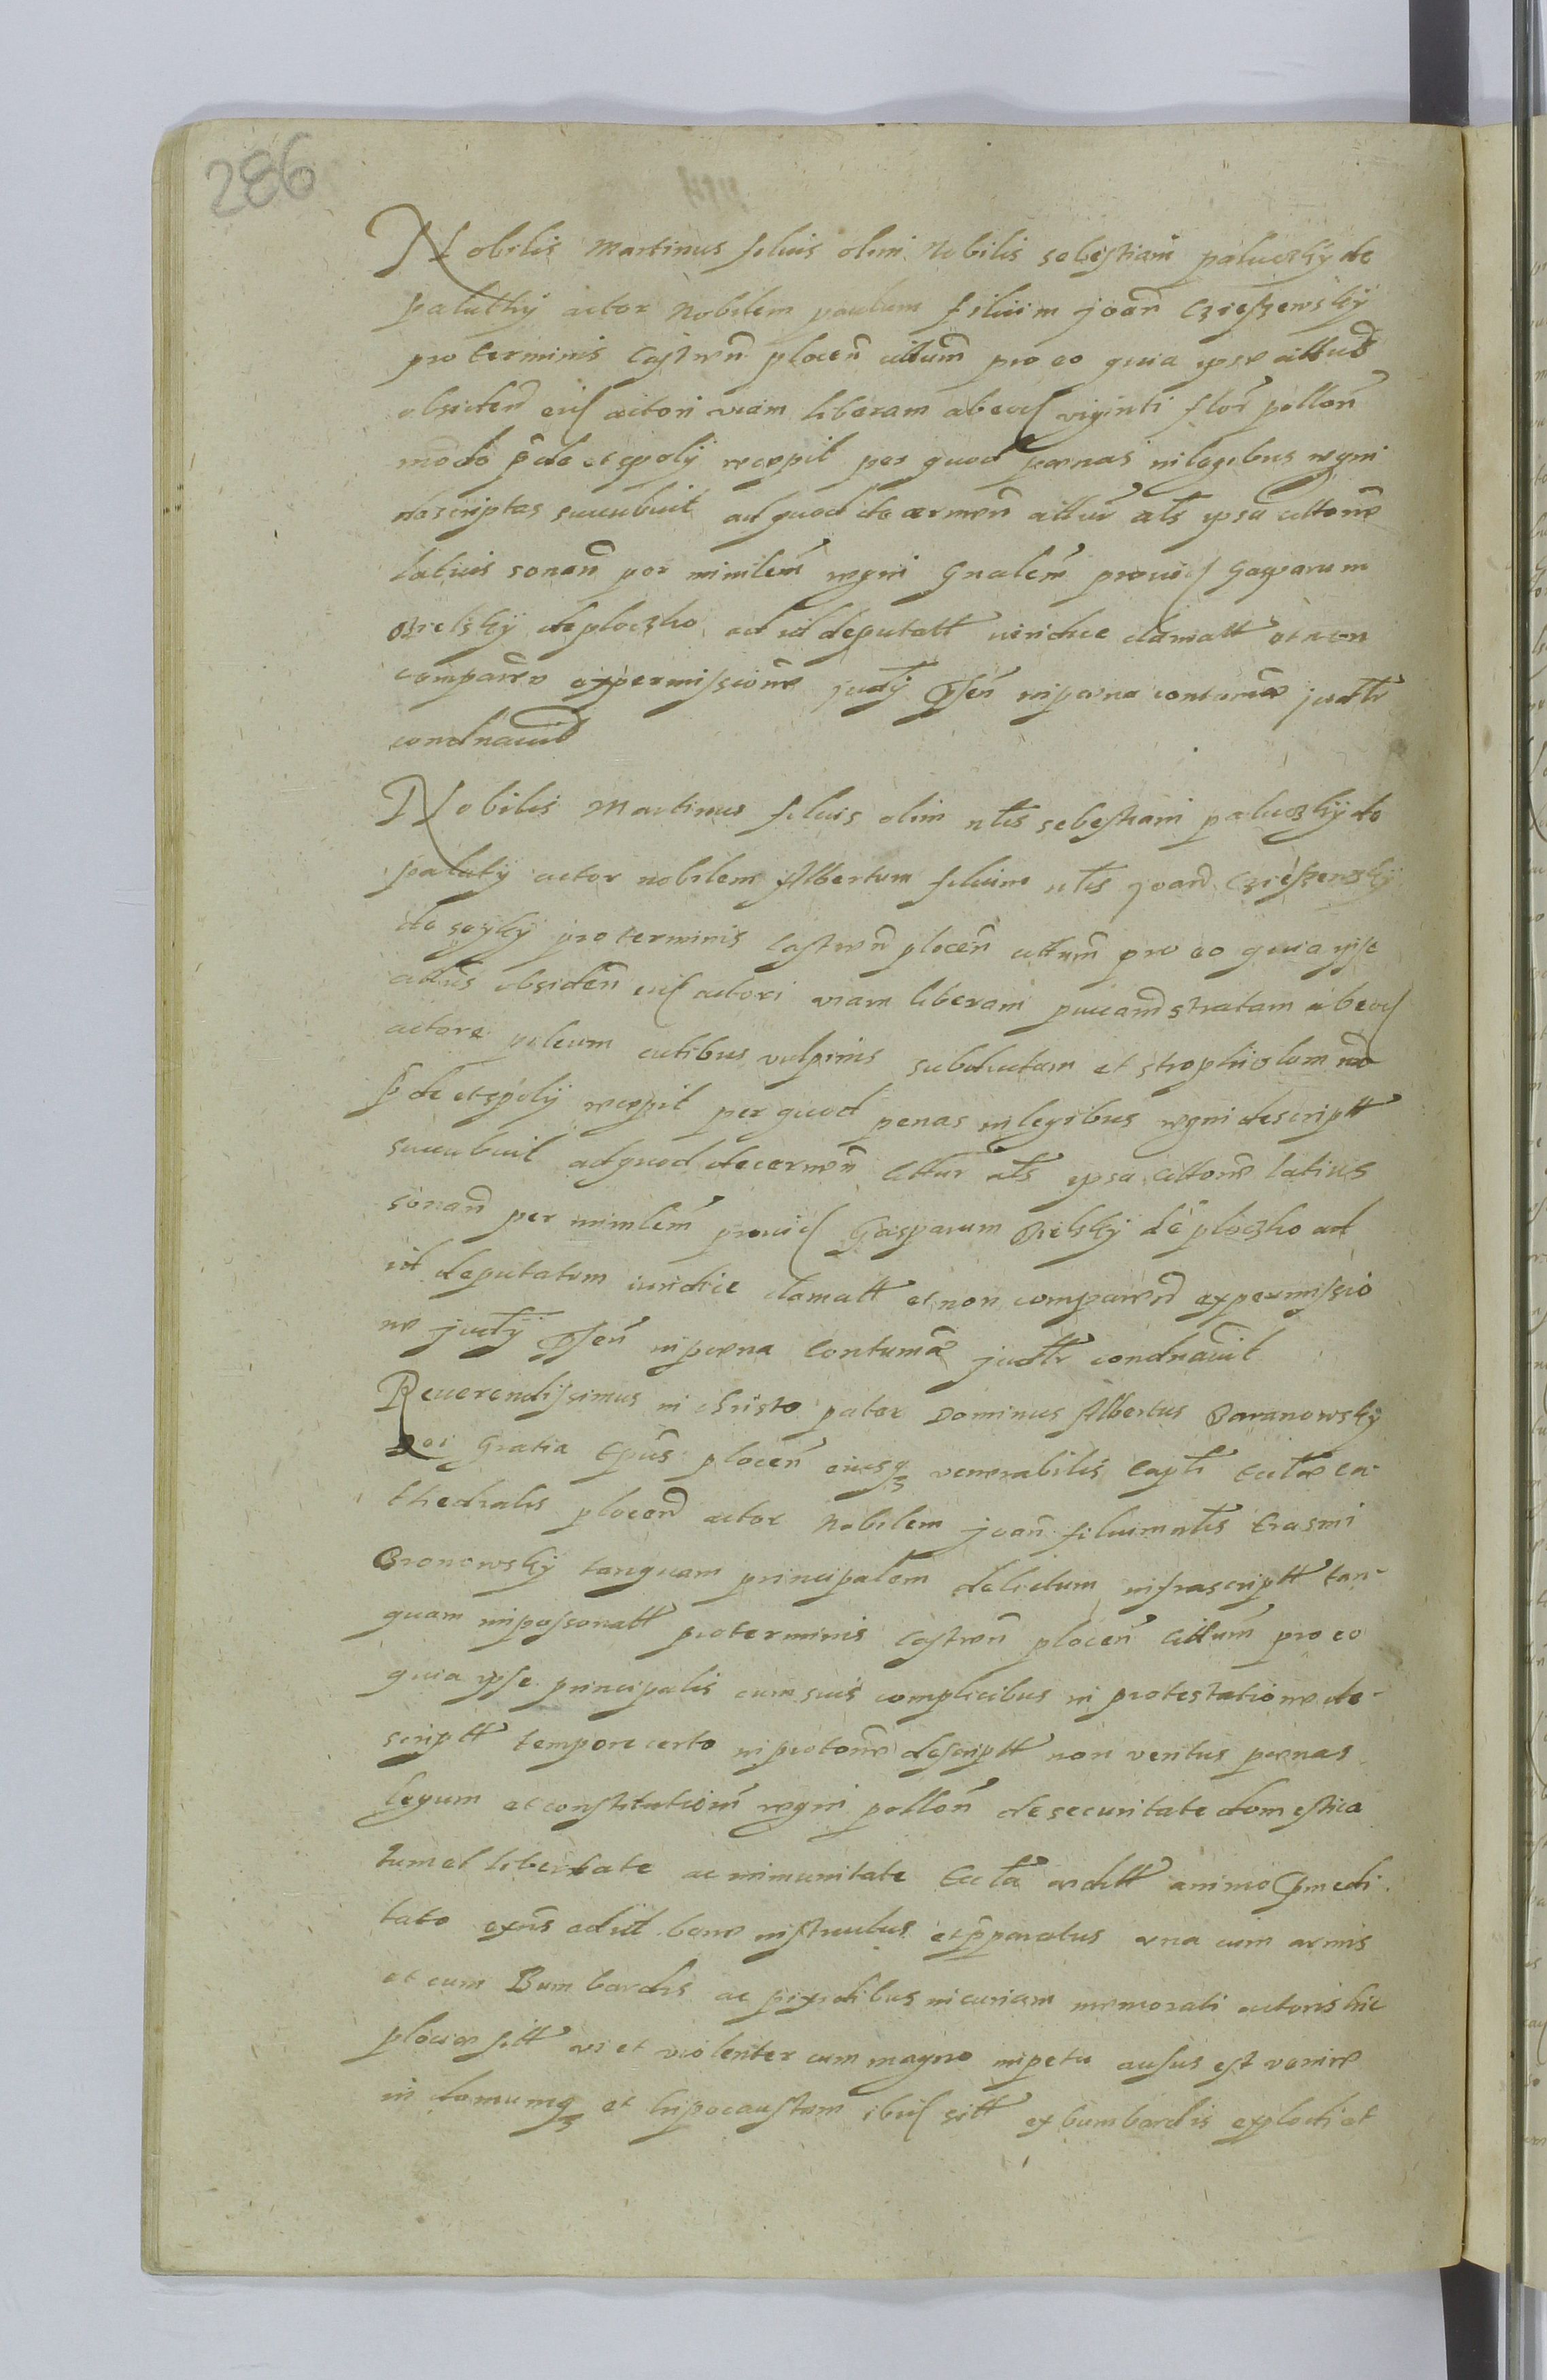 286
Nobilis Martinus filius olim Nobilis sebestiani paluczky de
palutky actor Nobilem paulum filium joan̄ Czieszewsky
pro terminis Castren̄ plocen̄ cittum̄ pro eo quia ipse cittus
obsiden̄ eid actori viam liberam ab eod viginti flor̄ pollon̄
modo p̄de et spolÿ recepit per quod poenas in legibus regni
descriptas succubuit ad quod decernen̄ cittur̄ al̄s ipsa cittone
latius sonan̄ per minilem̄ regni Gnalem̄ provid Gasparum
Bielsky deploczko ad id deputatt iuridice clamatt et non
comparen̄ ex permissione judÿ p̄sen̄ in poena contumae judtr
condnavit
Nobilis Martinus filius olim nlis sebestiani paluczky de
paluty actor nobilem Albertum filium nlis joan̄ Czieszewsky
de soyky pro terminis Castren̄ plocen̄ cittum̄ pro eo quia ipse
cittus obsiden̄ eid actori viam liberam puccam stratam ab eod
actore pileum cutibus vulpinis subductam et strophiolum mō
p̄de et spolÿ recepit per quod penas in legibus regni descriptt
succubuit ad quod decernen̄ cittur al̄s ipsa cittone latius
sonan̄ per minilem̄ provid Gasparum Bielsky de ploczko ad
id deputatum iuridice clamatt et non comparen̄ ex permissio
ne judÿ p̄sen̄ in poena contumae judtr condnavit
Reverendissimus in christo pater Dominus Albertus Baranowsky
Dei Gratia Ep̄us plocen̄ eiusq venerabilis Capli Eccl̄ae ca-
thedralis plocen̄ actor Nobilem joan̄ filium nlis Erasmi
Bronowsky tanquam principalem delictum infrascriptt tan-
quam impossonatt pro terminis Castren̄ plocen̄ Cittum̄ pro eo
quia ipse principalis cum suis complicibus in protestatione de-
scriptt tempore certo in protone descriptt non veritus poenas
legum et constitutiom̄ regni pollon̄ de securitate domestica
tum et libertate ac immunitate Eccl̄a editt animo p̄medi
tato exn̄s ad id bene instructus et p̄paratus una cum armis
et cum Bumbardis ac pixidibus in curiam memorati actoris hic
plociae sitt vi et violenter cum magno impetu ausus est venire
in domumq et hipocaustum ibid sitt ex bumbardis explodi et